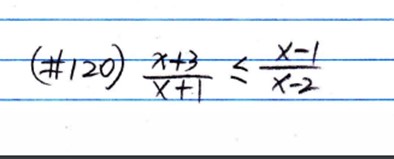 (#120) x+3/x+1 ≤ x-1/x-2